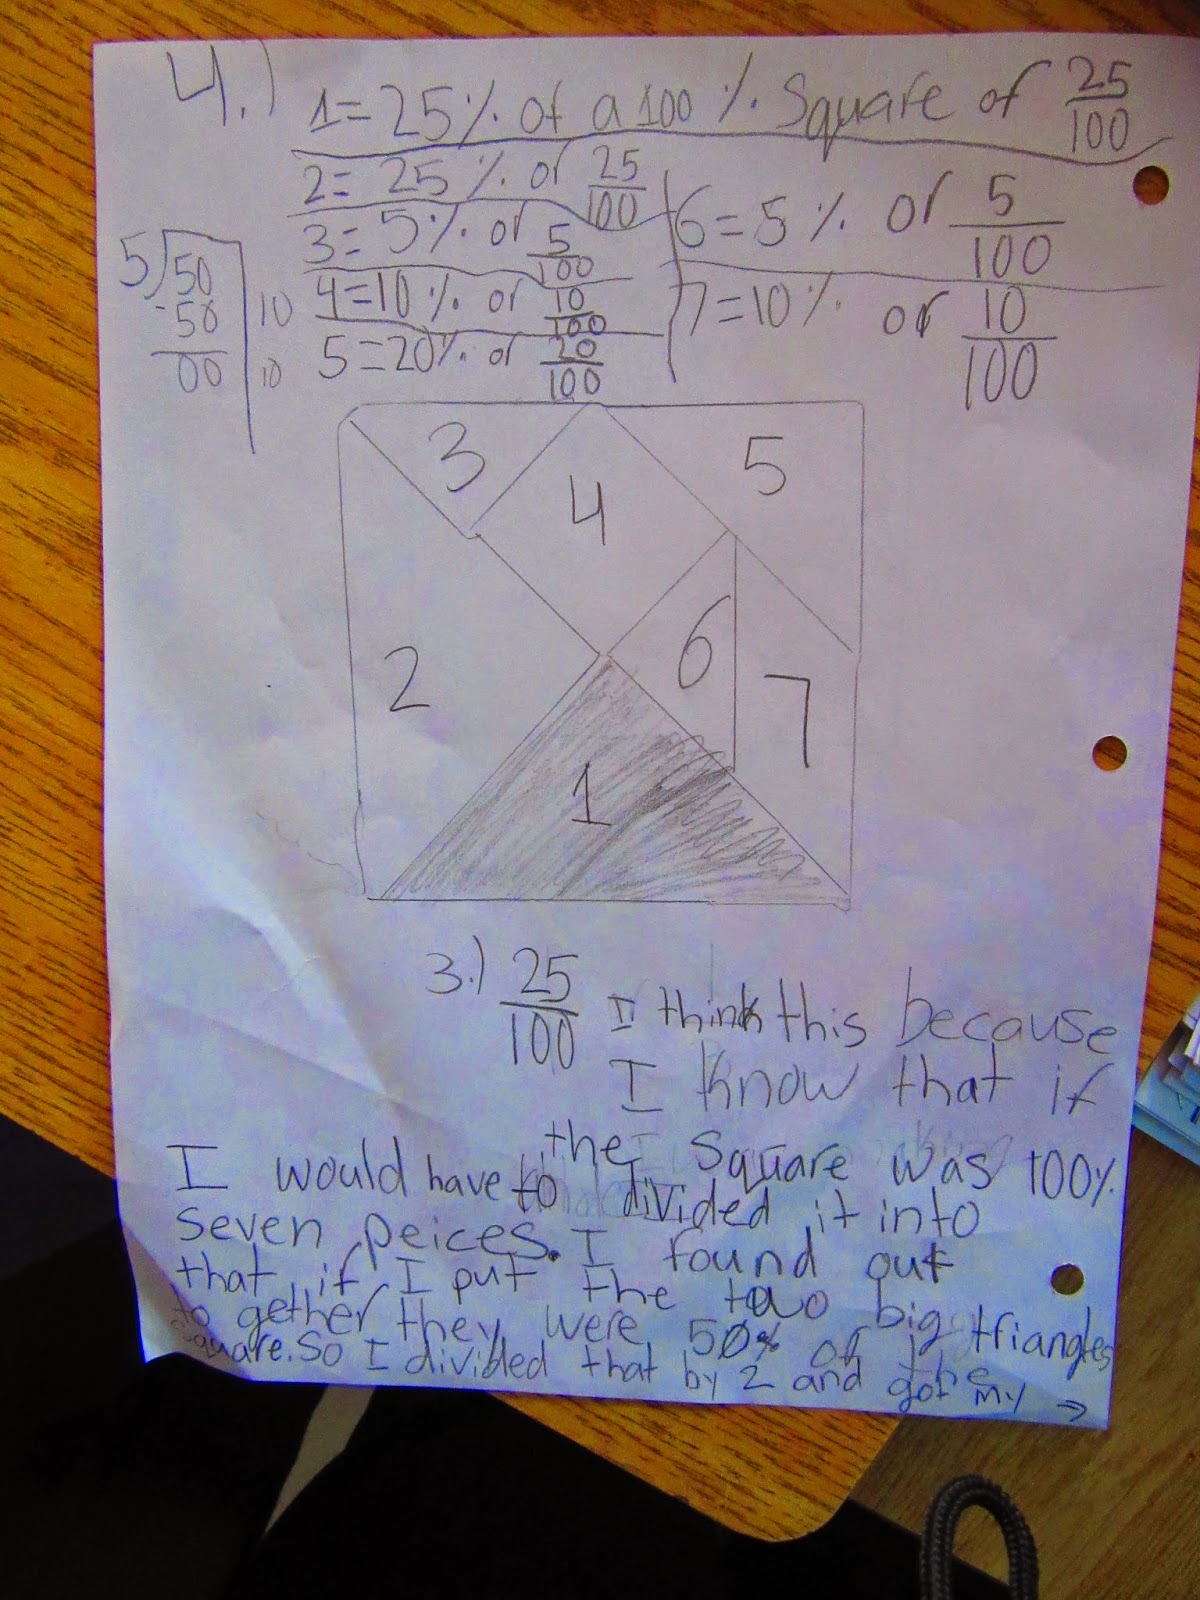 4.)
1=25% of a 100% Square of 25/100
2= 25% or 25/100
3= 5% or 5/100
4=10% or 10/100
5=20% or 20/100
6=5% or 5/100
7=10% or 10/100
5)50
-50
00
10
10
3
4
5
2
6
7
1
3.) 25/100 I think this because
I know that if
the square was 100%.
I would have to divided it into
seven peices. I found out
that if I put the two big triangles
to gether they were 50% of the
square. So I divided that by 2 and got my →